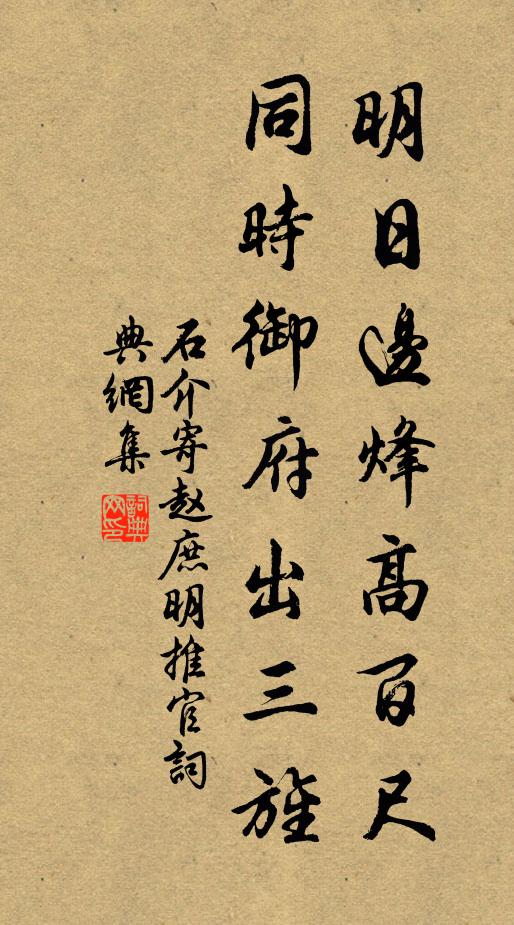 明日邊烽高百尺
同時御府出三旌
石介寄赵庶明推官詞
典網集
詞典网印